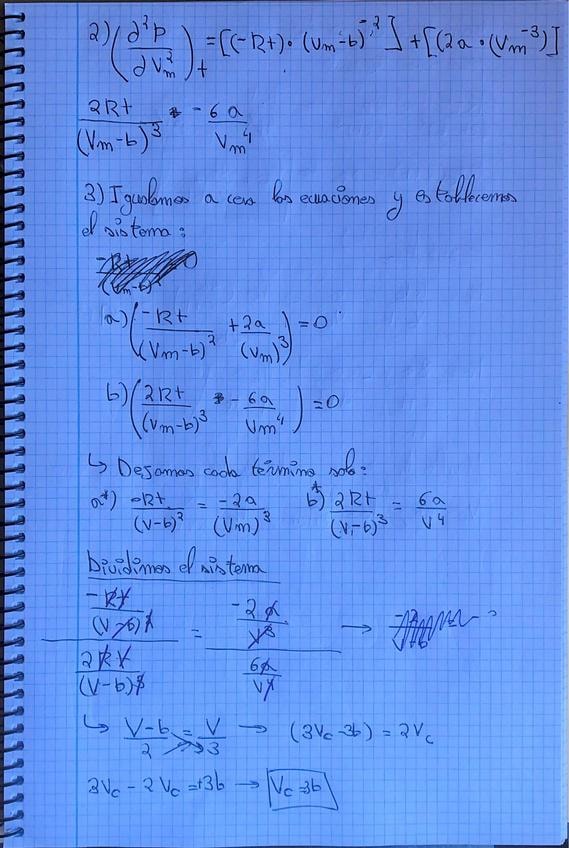 2) (∂²P / ∂Vm²)t = [(-Rt)·(Vm-b)⁻²] + [(2a·(Vm⁻³)]
2Rt / (Vm-b)³ - 6a / Vm⁴
3) Igualamos a cero las ecuaciones y establecemos
el sistema:
a) (-Rt / (Vm-b)² + 2a / (Vm)³) = 0
b) (2Rt / (Vm-b)³ - 6a / Vm⁴) = 0
↳ Dejamos cada término solo:
a*) -Rt / (V-b)² = -2a / (Vm)³ b*) 2Rt / (V-b)³ = 6a / V⁴
Dividimos el sistema
(-Rt / (V-b)²) / (2Rt / (V-b)³) = (-2a / V³) / (6a / V⁴) →
↳ V-b / 2 = V / 3 → (3Vc-3b) = 2Vc
3Vc - 2Vc = +3b → Vc=3b